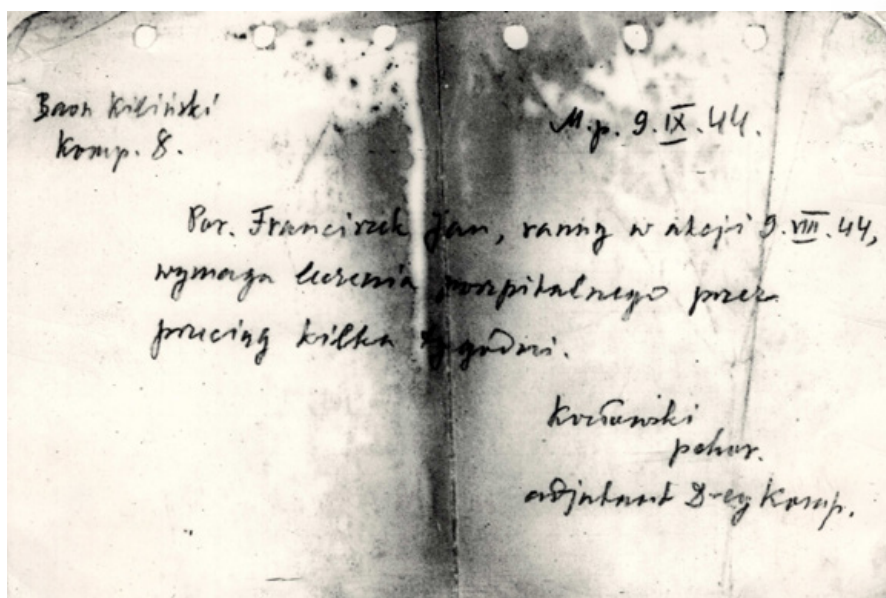 Baon Kiliński
Komp. 8.
M.p. 9.IX.44.
Por. Franciszek Jan, ranny w akcji 9.VIII.44,
wymaga leczenia poszpitalnego przez
przeciąg kilka tygodni.
Kozłowski
pchor.
adjutant D-cy Komp.